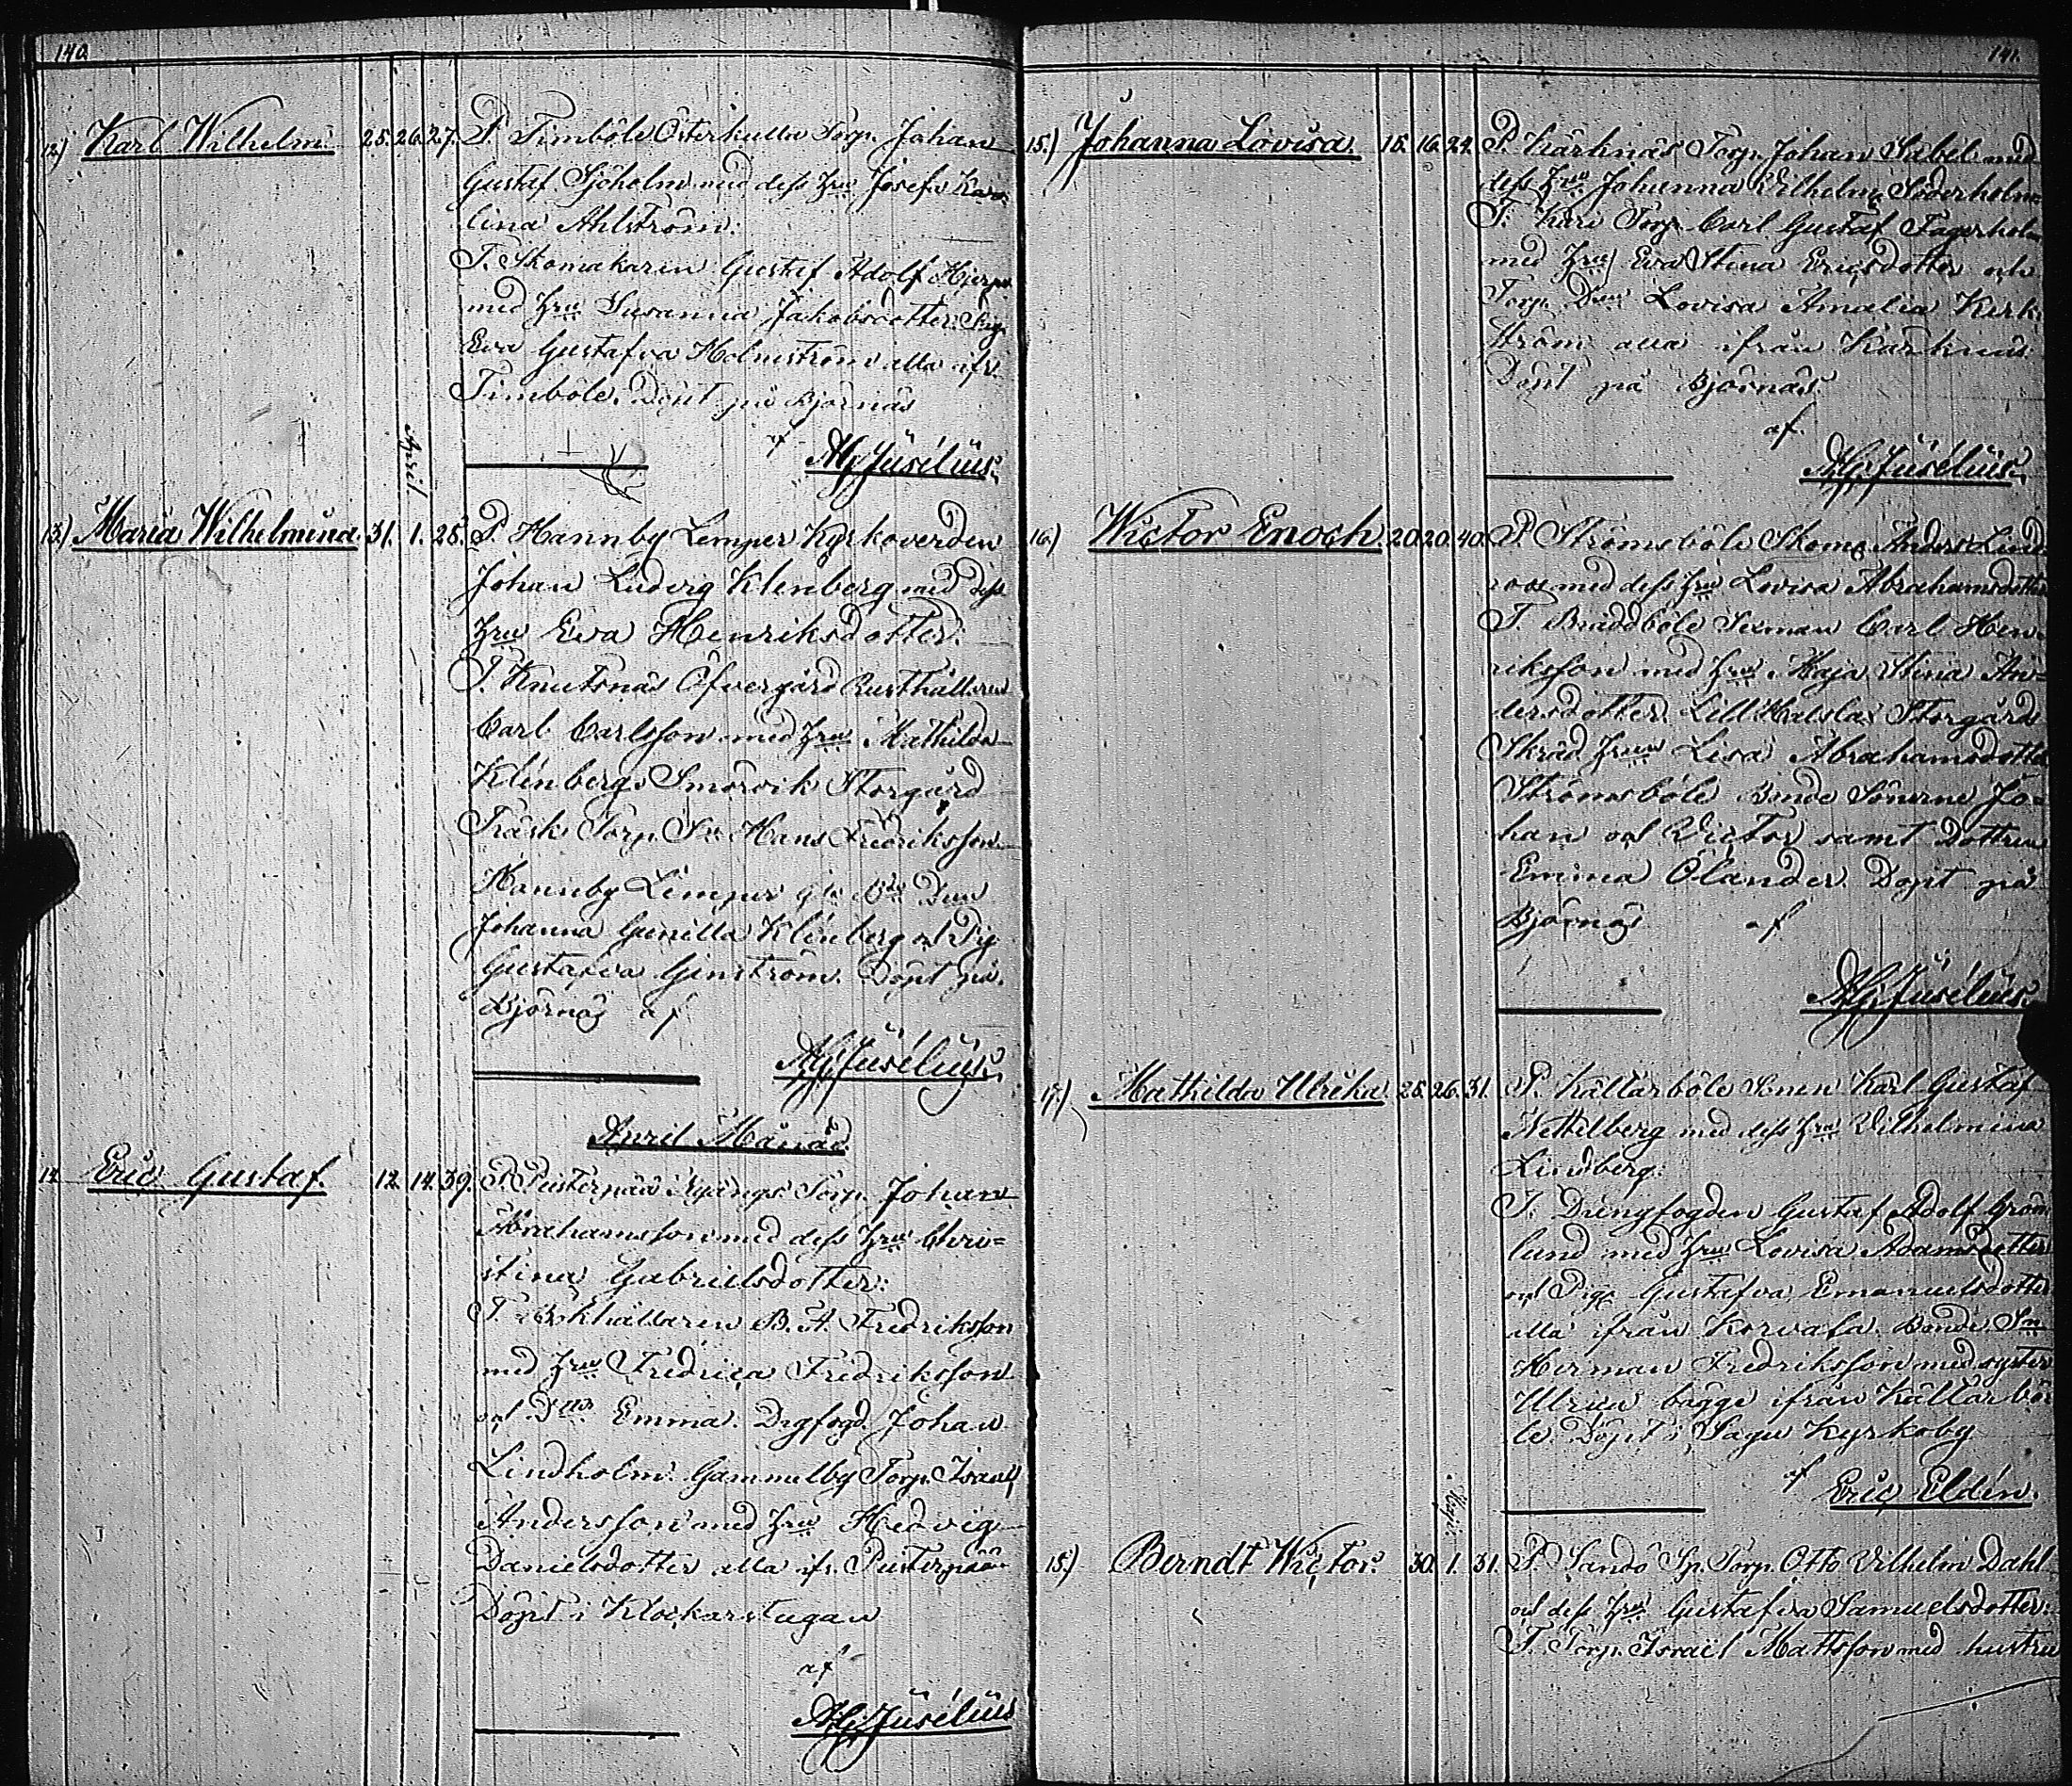 140.
12.) Karl Wilhelm. 25. 26. 27. P. Timböle Österkulla Torp. Johan
Gustaf Sjöholm med dess hru Josefa Karo-
lina Ahlström.
T. Skomakaren Gustaf Adolf
med hru Susanna Jakobsdotter. Pig.
Eva Gustafva Holmström alla ifr.
Timböle. Döpt på Björnäs
af
Juselius.
April
13.) Maria Wilhelmina. 31. 1. 28. P. Hannby Lemper Kyrkoverden
Johan Ludvig Klenberg med dess
hru Eva Henriksdotter.
T. Knutsnäs Öfvergård Rusthållaren
Carl Carlsson med hru Mathilda
Klenberg. Smörvik Storgård
Träsk Torp. Sn Hans Fredriksson
Hannby Lemper
Johanna Gunilla Klenberg och Pig.
Gustafva Ginström. Döpt på
Björnäs af
Juselius.
April Månad.
14. Eric Gustaf. 12. 14. 39. P. Pusternäs Torp. Johan
Abrahamsson med dess hru Chri=
stina Gabrielsdotter:
T. Bokhållaren B. A. Fredriksson
med hru Fredrica Fredriksson
och Emma. Drgfogd. Johan
Lindholm. Gammelby Torp. Israel
Andersson med hru Hedvig
Danielsdotter alla ifr. Pusternäs
Döpt i Klockarstugan
af
Juselius
141.
15.) Johanna Lovisa. 15. 16. 24. P. Kärknäs Torp. Johan Sabel med
dess hru Johanna Vilhelmina Söderholm
T. Torp. Carl Gustaf Fagerholm
med hru Eva Stina Ericsdotter och
Torp. Lovisa Amalia Kerk-
ström alla ifrån Kärknäs.
Döpt på Björnäs.
af.
Juselius.
16.) Wictor Enoch. 20. 20. 40. P. Strömsböle Skom. Anders Lind
roos med dess hru Lovisa Abrahamsdotter
T. Bräddböle Sexman Carl Hen-
riksson med hru Maja Stina An=
dersdotter. Lill Storgård
Skräd. hrun Lisa Abrahamsdotter
Strömsböle Bonde Sönerne Jo=
han och Victor samt Dottren
Emma Ölander. Döpt på
Björnäs af
Juselius.
17.) Mathilda Ulrika. 25. 26. 31. P. Källarböle Karl Gustaf
Nettelberg med dess hru Vilhelmina
Lindberg:
T. Drengfogden Gustaf Adolf Grön
lund med hru Lovisa Adamsdotter
och Pig. Gustafva Emanuelsdotter
alla ifrån Korvala. Bonde Sn
Herman Fredriksson med syster
Ulrica bägge ifrån Källarbö-
le. Döpt i Sagu Kyrkoby
af
Eric Eldén.
Maji
15.) Berndt Wictor. 30. 1. 31. P. Sandö Sp. Torp. Otto Vilhelm Dahl
och dess hru Gustafva Samuelsdotter:
T. Torp. Israel Mattsson med hustru